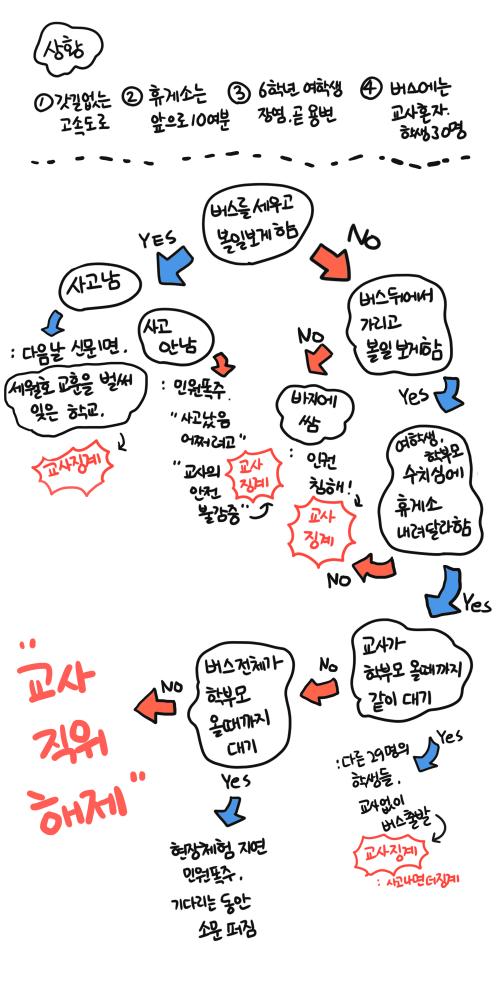 상황
① 갓길없는
고속도로
② 휴게소는
앞으로 10여분
③ 6학년 여학생
장염. 곧 용변
④ 버스에는
교사혼자.
학생30명
버스를 세우고
볼일보게 함
YES
NO
사고남
: 다음날 신문1면.
세월호 교훈을 벌써
잊은 학교.
교사징계
사고
안남
: 민원폭주.
"사고났음
어쩌려고"
"교사의
안전
불감증"
교사
징계
버스뒤에서
가리고
볼일보게함
NO
바지에
쌈
: 인권
침해!
교사
징계
Yes
여학생,
학부모
수치심에
휴게소
내려달라함
NO
Yes
교사가
학부모 올때까지
같이 대기
Yes
: 다른 29명의
학생들.
교사없이
버스출발
교사징계
: 사고나면 더징계
No
버스전체가
학부모
올때까지
대기
Yes
현장체험 지연
민원폭주.
기다리는 동안
소문 퍼짐
NO
"교사
직위
해제"